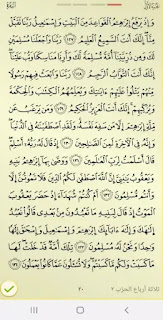 البقرة الجزء الأول
وَإِذْ يَرْفَعُ إِبْرَٰهِـۧمُ ٱلْقَوَاعِدَ مِنَ ٱلْبَيْتِ وَإِسْمَٰعِيلُ رَبَّنَا تَقَبَّلْ
مِنَّآ إِنَّكَ أَنتَ ٱلسَّمِيعُ ٱلْعَلِيمُ ١٢٧ رَبَّنَا وَٱجْعَلْنَا مُسْلِمَيْنِ لَكَ
وَمِن ذُرِّيَّتِنَآ أُمَّةً مُّسْلِمَةً لَّكَ وَأَرِنَا مَنَاسِكَنَا وَتُبْ عَلَيْنَآ
إِنَّكَ أَنتَ ٱلتَّوَّابُ ٱلرَّحِيمُ ١٢٨ رَبَّنَا وَٱبْعَثْ فِيهِمْ رَسُولًا
مِّنْهُمْ يَتْلُوا۟ عَلَيْهِمْ ءَايَٰتِكَ وَيُعَلِّمُهُمُ ٱلْكِتَٰبَ وَٱلْحِكْمَةَ
وَيُزَكِّيهِمْ إِنَّكَ أَنتَ ٱلْعَزِيزُ ٱلْحَكِيمُ ١٢٩ وَمَن يَرْغَبُ عَن
مِّلَّةِ إِبْرَٰهِـۧمَ إِلَّا مَن سَفِهَ نَفْسَهُۥ وَلَقَدِ ٱصْطَفَيْنَٰهُ فِى ٱلدُّنْيَا
وَإِنَّهُۥ فِى ٱلْءَاخِرَةِ لَمِنَ ٱلصَّٰلِحِينَ ١٣٠ إِذْ قَالَ لَهُۥ رَبُّهُۥٓ أَسْلِمْ
قَالَ أَسْلَمْتُ لِرَبِّ ٱلْعَٰلَمِينَ ١٣١ وَوَصَّىٰ بِهَآ إِبْرَٰهِـۧمُ بَنِيهِ
وَيَعْقُوبُ يَٰبَنِىَّ إِنَّ ٱللَّهَ ٱصْطَفَىٰ لَكُمُ ٱلدِّينَ فَلَا تَمُوتُنَّ إِلَّا
وَأَنتُم مُّسْلِمُونَ ١٣٢ أَمْ كُنتُمْ شُهَدَآءَ إِذْ حَضَرَ يَعْقُوبَ
ٱلْمَوْتُ إِذْ قَالَ لِبَنِيهِ مَا تَعْبُدُونَ مِنۢ بَعْدِى قَالُوا۟ نَعْبُدُ
إِلَٰهَكَ وَإِلَٰهَ ءَابَآئِكَ إِبْرَٰهِـۧمَ وَإِسْمَٰعِيلَ وَإِسْحَٰقَ إِلَٰهًا
وَٰحِدًا وَنَحْنُ لَهُۥ مُسْلِمُونَ ١٣٣ تِلْكَ أُمَّةٌ قَدْ خَلَتْ لَهَا
مَا كَسَبَتْ وَلَكُم مَّا كَسَبْتُمْ وَلَا تُسْـَٔلُونَ عَمَّا كَانُوا۟ يَعْمَلُونَ ١٣٤
ثلاثة أرباع الحزب ٢ ٢٠